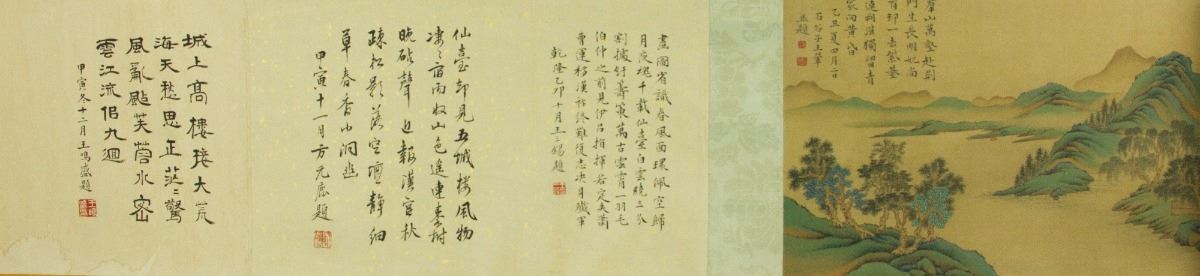 羣山萬壑赴荆
門生長明妃尚
有邨一去紫臺
連朔漠獨留青
冢向黃昏
乙丑夏四月二日
石谷子王翬
並題
畫圖省識春風面環佩空歸
月夜魂千載仙臺白雲繞三分
割據紆籌策萬古雲霄一羽毛
伯仲之間見伊吕指揮若定失蕭
曹運移漢祚終難復志决身殲軍
乾隆己卯十月王錫題
仙臺初見五城樓風物
凄〻宿雨收山色遥連秦樹
晚砧聲近報漢宫秋
疎松影落空壇静細
草春香小洞幽
甲寅十一月方元鹿題
城上高樓接大荒
海天愁思正茫〻驚
風亂颭芙蓉水密
雲江流佀九迴
甲寅冬十二月王鳴盛題